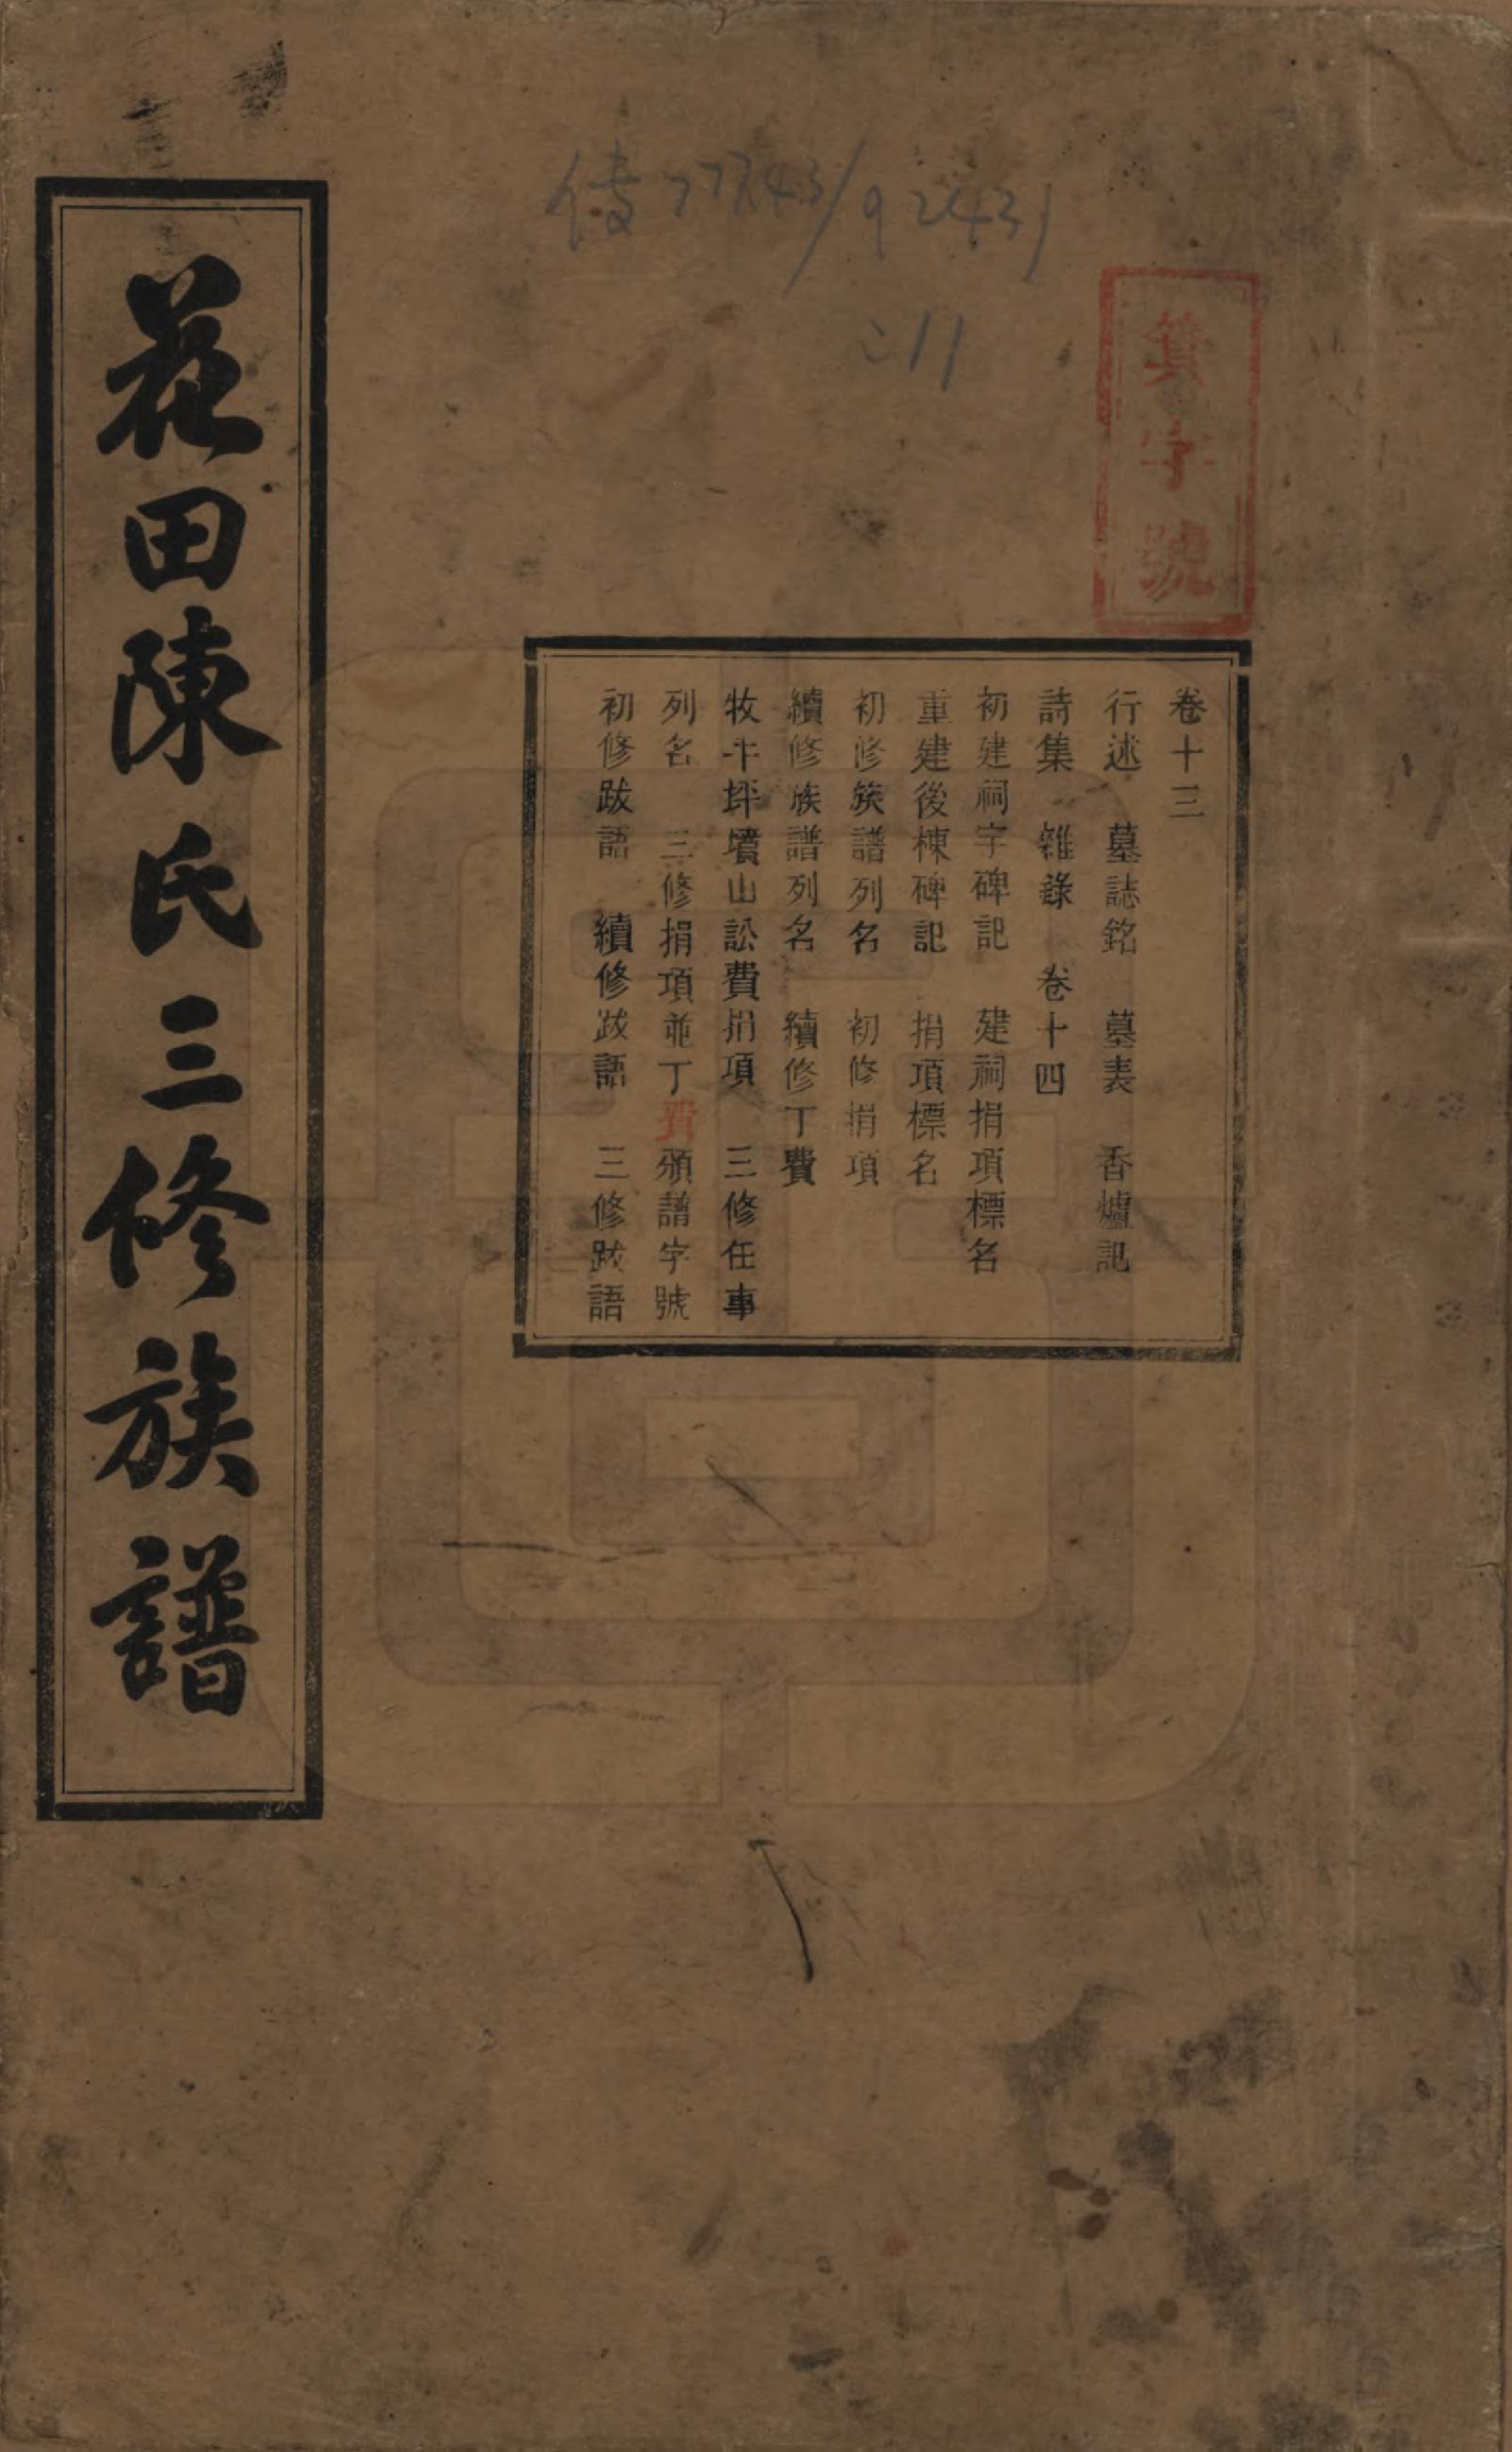 傳777.43/92431
:11
箕字號
卷十三
行述 墓誌銘 墓表 香爐記
詩集 雜錄 卷十四
初建祠宇碑記 建祠捐項標名
重建後棟碑記 捐項標名
初修族譜列名 初修捐項
續修族譜列名 續修丁費
牧牛坪墳山訟費捐項 三修任事
列名 三修捐項並丁費頒譜字號
初修跋語 續修跋語 三修跋語
花田陳氏三修族譜